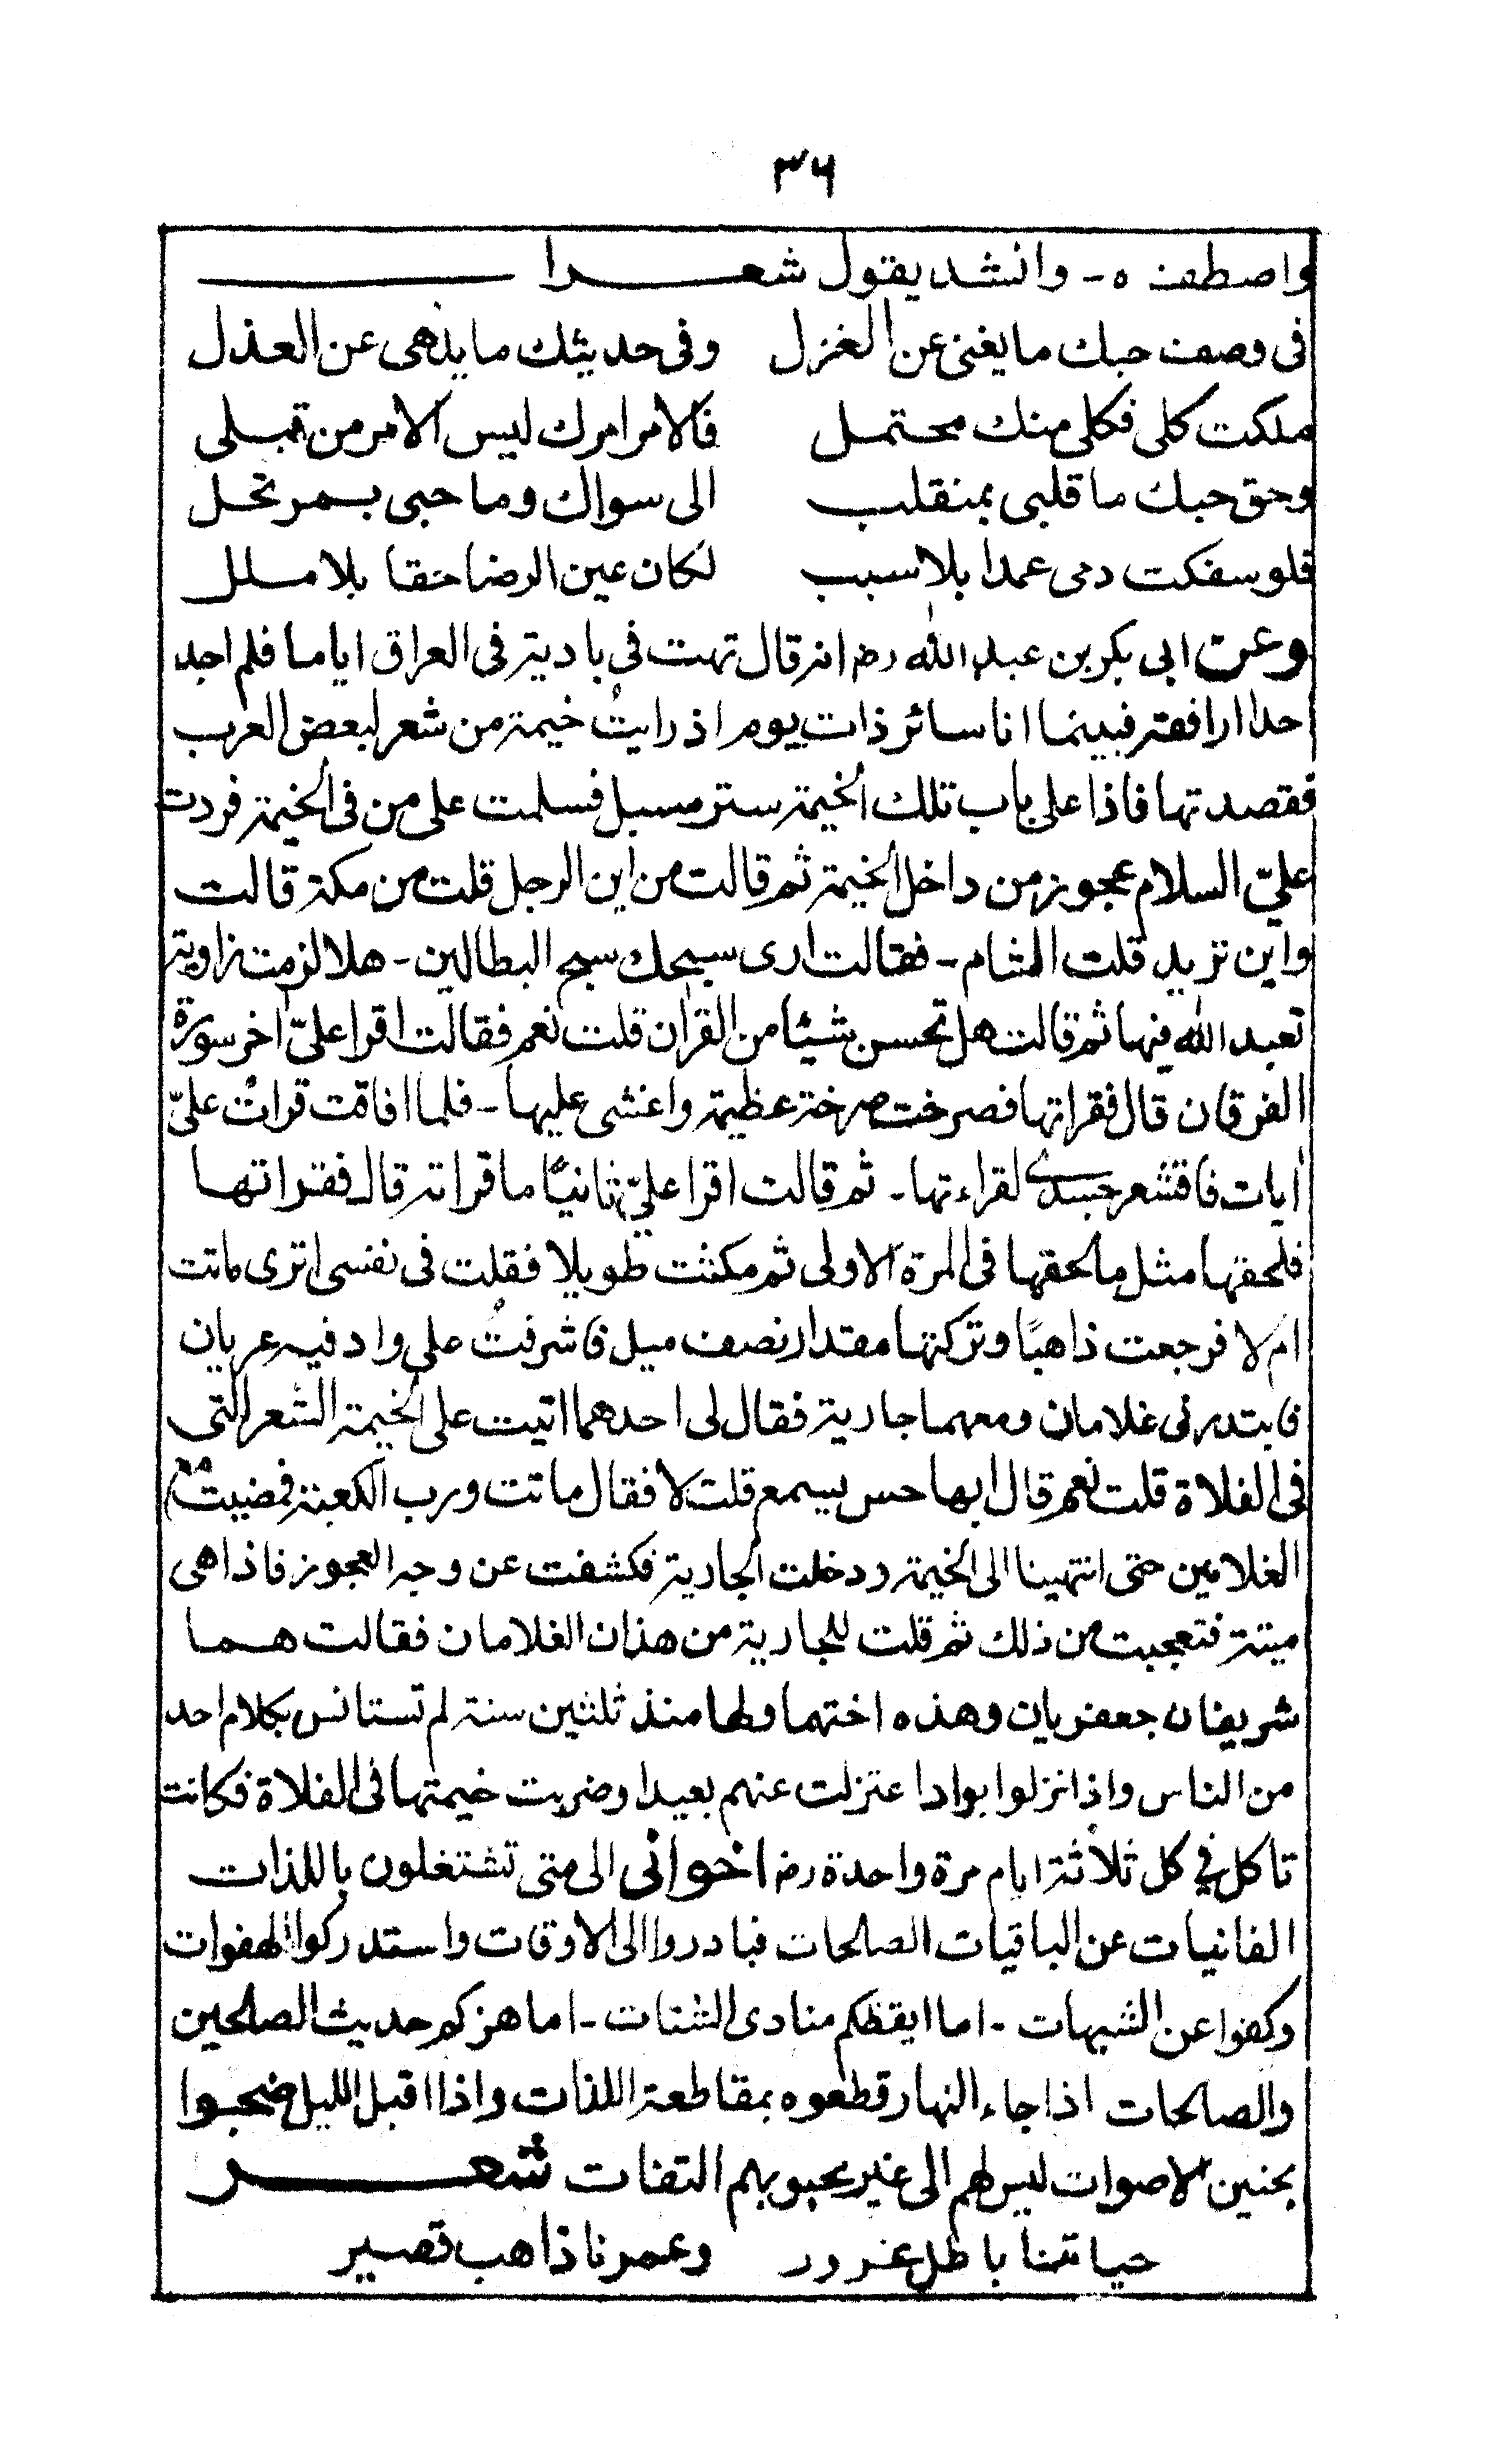 ٣٦
واصطفت ه - وانشد يقول شعرا
في وصف حبك ما يغنى عن الغزل وفى حديثك ما يلهى عن العذل
ملكت كلى فكلى منك محتمل فالامر امرك ليس الامر من قبلى
وحق حبك ما قلبى بمنقلب الى سواك وما حبى بمرتحل
فلو سفكت دمى عمدا بلا سبب لكان عين الرضا حقا بلا ملل
وعن ابى بكر بن عبد الله رض انه قال تهت فى بادية فى العراق اياما فلم اجد
احدا ارافقه فبينما انا سائر ذات يوم اذ رايتُ خيمة من شعر لبعض العرب
فقصدتها فاذا على باب تلك الخيمة ستر مسبل فسلمت على من فى الخيمة فردت
علىّ السلام عجوز من داخل الخيمة ثم قالت من اين الرجل قلت من مكة قالت
واين تريد قلت الشام - فقالت ارى سيحك سيح البطالين - هلا لزمت زاوية
تعبد الله فيها ثم قالت هل تحسن شيئا من القران قلت نعم فقالت اقرا علىّ اخر سورة
الفرقان قال فقراتها فصرخت صرخة عظيمة واغشى عليها - فلما افاقت قراتْ علىّ
ايات فاقشعر جسدى لقراءتها - ثم قالت اقرا علىّ ثانيًا ما قراته قال فقراتها
فلحقها مثل ما لحقها فى المرة الاولى ثم مكثت طويلا فقلت فى نفسى اترى ماتت
ام لا فرجعت ذاهبًا وتركتها مقدار نصف ميل فاشرفتُ على واد فيه عربان
فابتدرنى غلامان ومعهما جارية فقال لى احدهما اتيت على الخيمة الشعر التى
فى الفلاة قلت نعم قال ابها حس يسمع قلت لا فقال ماتت ورب الكعبة فمضيت مع
الغلامين حتى انتهينا الى الخيمة ودخلت الجارية فكشفت عن وجه العجوز فاذا هى
ميتة فتعجبت من ذلك ثم قلت للجارية من هذان الغلامان فقالت هما
شريفان جعفريان وهذه اختهما ولها منذ ثلثين سنة لم تستانس بكلام احد
من الناس واذا نزلوا بواد اعتزلت عنهم بعيدا وضربت خيمتها فى الفلاة فكانت
تاكل في كل ثلاثة ايام مرة واحدة رض اخوانى الى متى تشتغلون باللذات
الفانيات عن الباقيات الصالحات فبادروا الى الاوقات واستدركوا الهفوات
وكفوا عن الشبهات - اما ايقظكم منادى الشتات - اما هزكم حديث الصلحين
والصالحات اذا جاء النهار قطعوه بمقاطعة اللذات واذا اقبل الليل ضجوا
بحنين الاصوات ليس لهم الى غير محبوبهم التفات شعر
حياتنا باطل غرور وعمرنا ذاهب قصير